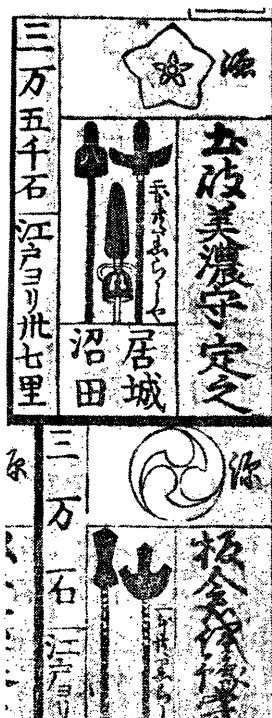 源
土岐美濃守定之
居城
沼田
三万五千石
江戸ヨリ卅七里
源
板倉伊豫守
三万石
江戸ヨリ